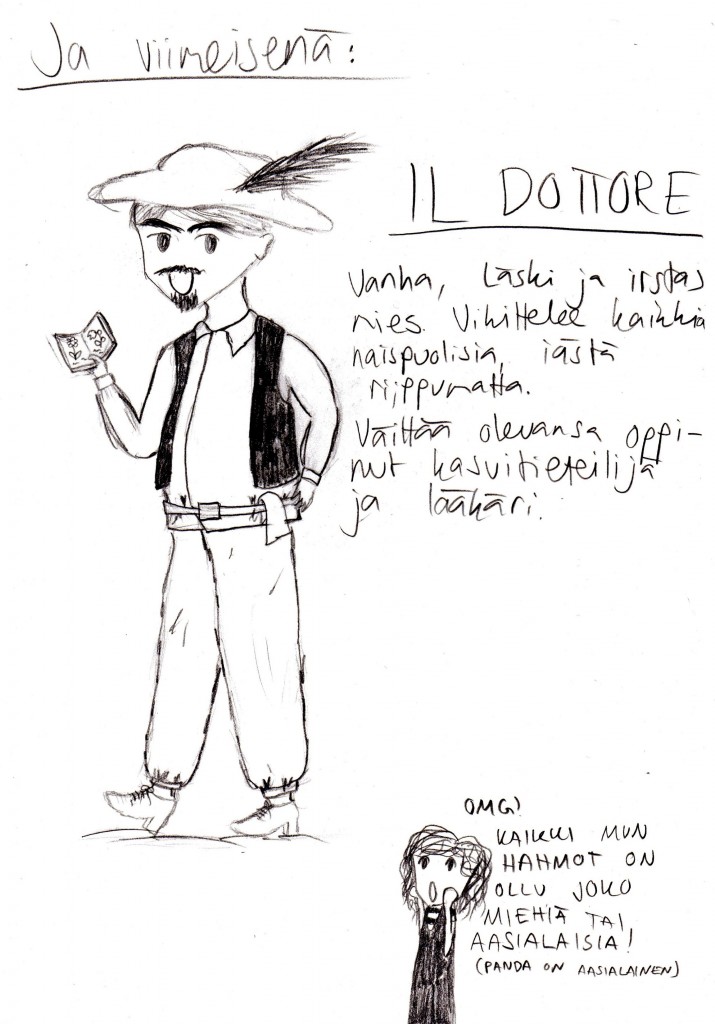 Ja viimeisenä:
IL DOTTORE
Vanha, Läski ja irstas
mies. Vihittelee kaikkia
naispuolisia, iästä
riippumatta.
Väittää olevansa oppi-
nut kasvitieteilijä
ja lääkäri.
OMG!
KAIKKI MUN
HAHMOT ON
OLLU JOKO
MIEHIÄ TAI
AASIALAISIA!
(PANDA ON AASIALAINEN)